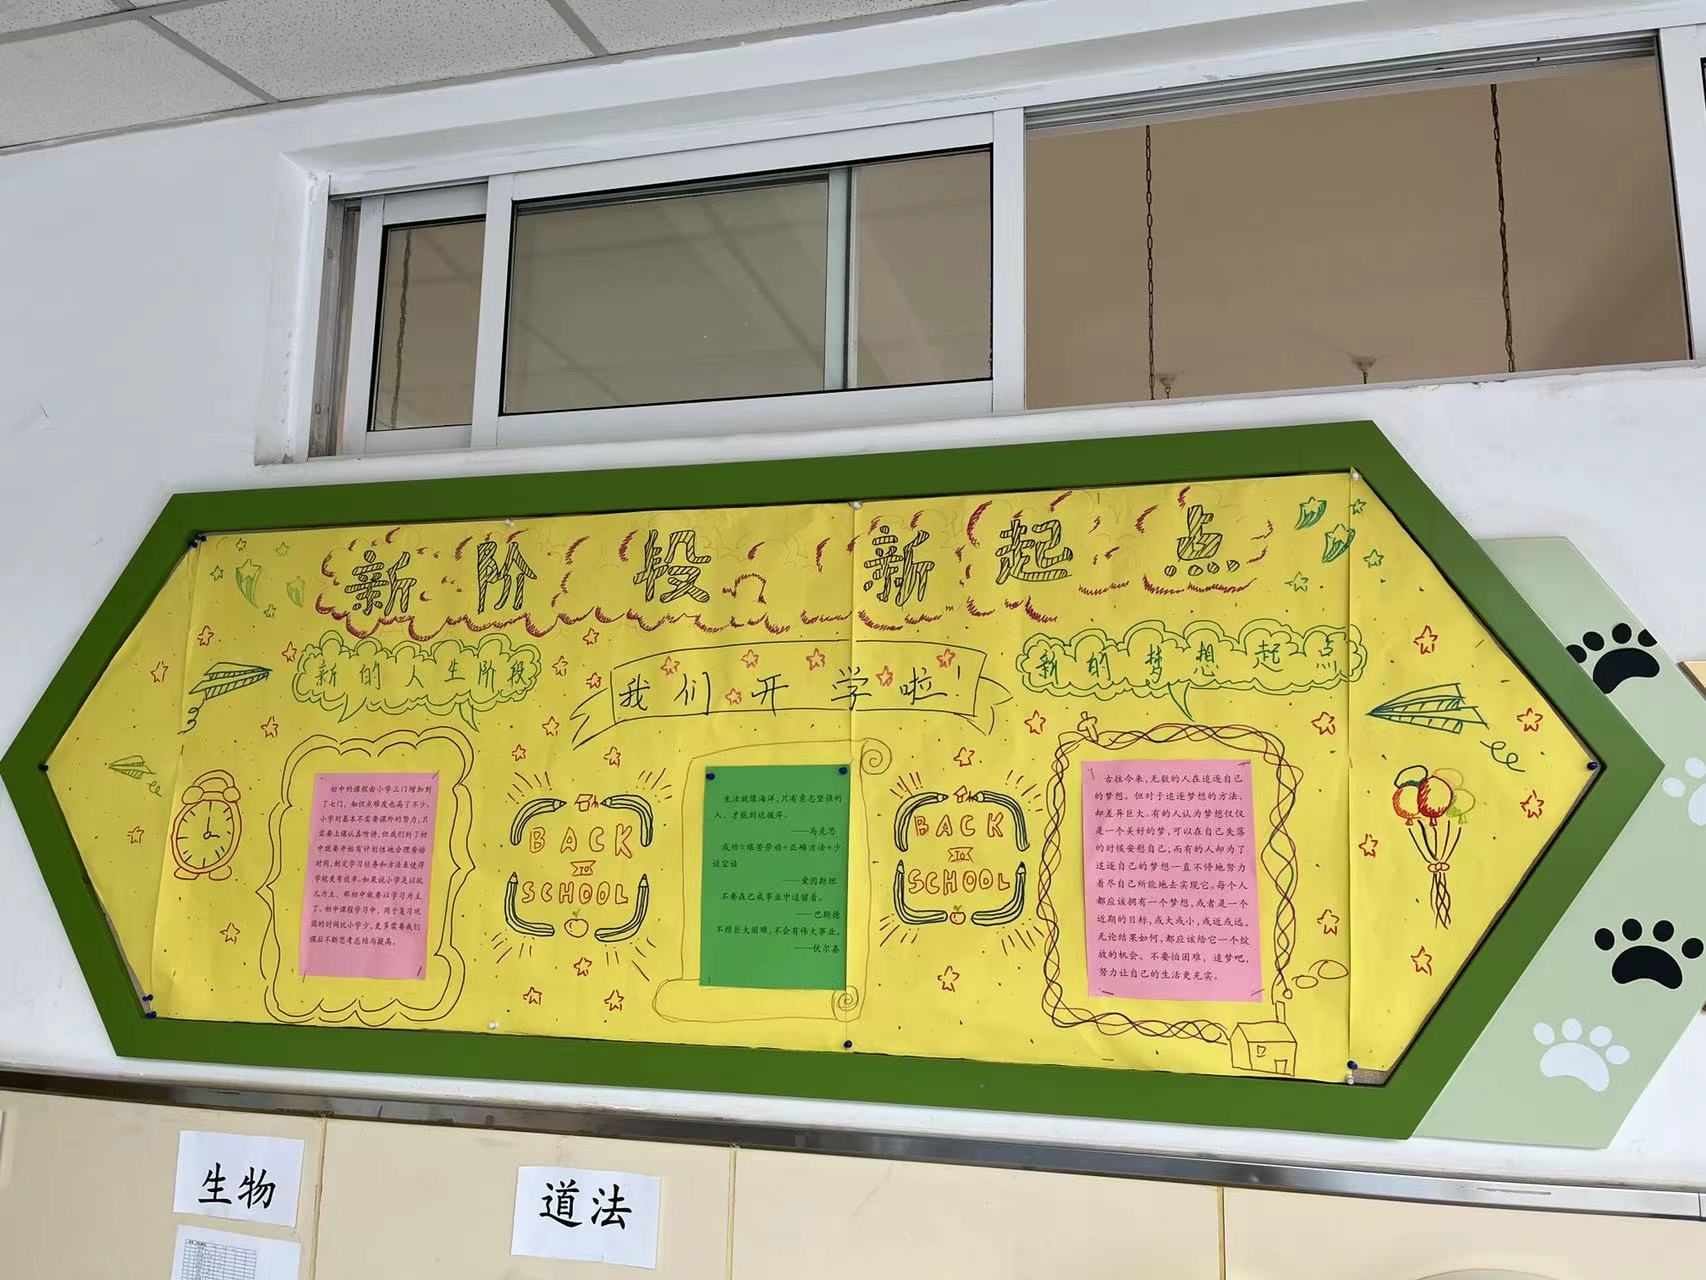 新阶段 新起点
新的人生阶段
我们开学啦!
新的梦想起点
初中的课程由小学三门增加到
了七门,知识点难度也高了不少,
小学时基本不需要课外的努力,只
需要上课认真听讲,但我们到了初
中就要开始有计划性地合理安排
时间,制定学习任务和方法来使得
学校更有效率。如果说小学是以玩
儿为主,那初中就要以学习为主
了。初中课程学习中,用于复习巩
固的时间比小学少,更多需要我们
课后不断思考总结与提高。
BACK
TO
SCHOOL
生活就像海洋,只有意志坚强的
人、才能到达彼岸。
——马克思
成功=艰苦劳动+正确方法+少
谈空话
——爱因斯坦
不要在已成事业中逗留着。
——巴斯德
不经巨大困难,不会有伟大事业。
——伏尔泰
BACK
TO
SCHOOL
古往今来,无数的人在追逐自己
的梦想。但对于追逐梦想的方法,
却差异巨大。有的人认为梦想仅仅
是一个美好的梦,可以在自己失落
的时候安慰自己;而有的人却为了
追逐自己的梦想一直不停地努力
着尽自己所能地去实现它。每个人
都应该拥有一个梦想,或者是一个
近期的目标,或大或小,或近或远,
无论结果如何,都应该给它一个绽
放的机会、不要怕困难,追梦吧,
努力让自己的生活更充实。
生物
道法